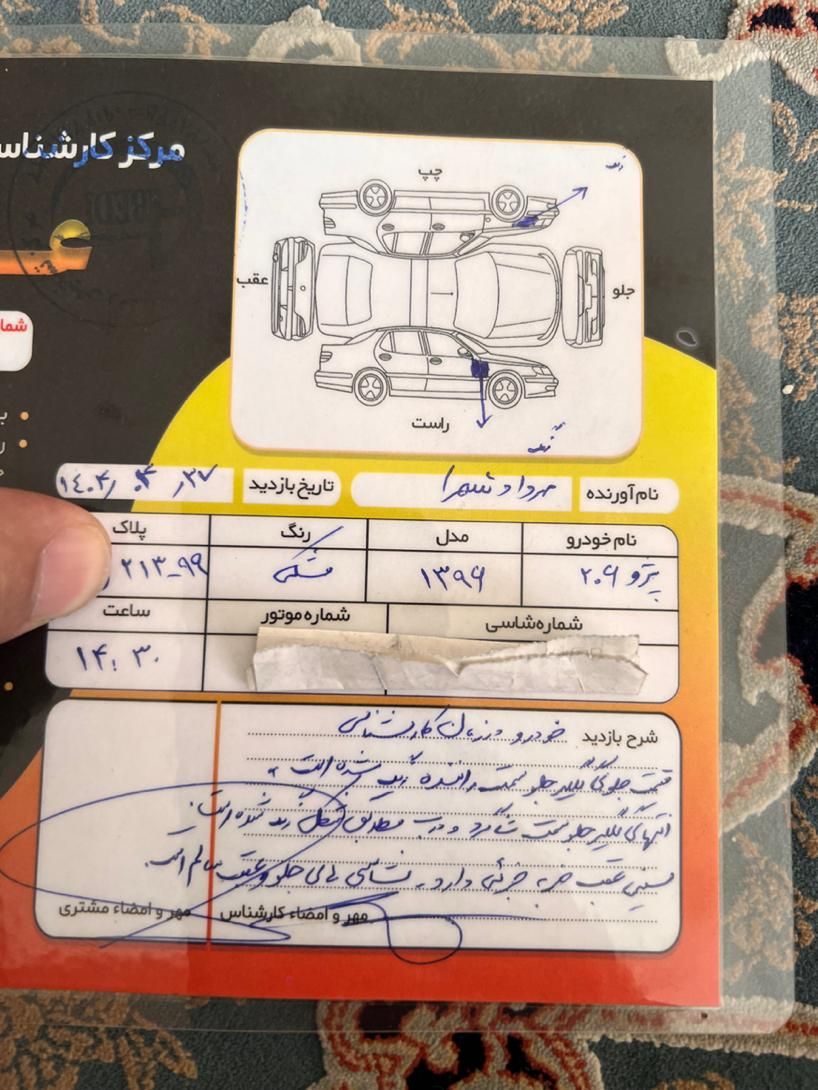 مرکز کارشناس
شما
چپ
رنگ
عقب
جلو
راست
رنگ
نام آورنده
مرداد شهرا
تاریخ بازدید
۱۴۰۴/۰۴/۲۷
نام خودرو
مدل
رنگ
پلاک
پژو ۲۰۶
۱۳۹۶
مشکی
۲۱۳-۹۹
شماره شاسی
شماره موتور
ساعت
۱۴:۳۰
شرح بازدید خودرو در زمان کارشناسی
قسمت جلوی گلگیر جلو سمت راننده رنگ شده است.
انتهای گلگیر جلو سمت شاگرد و درب مطابق شکل رنگ شده است.
سینی عقب ضربه جزئی دارد. شاسی های جلو و عقب سالم است.
مهر و امضاء کارشناس
مهر و امضاء مشتری